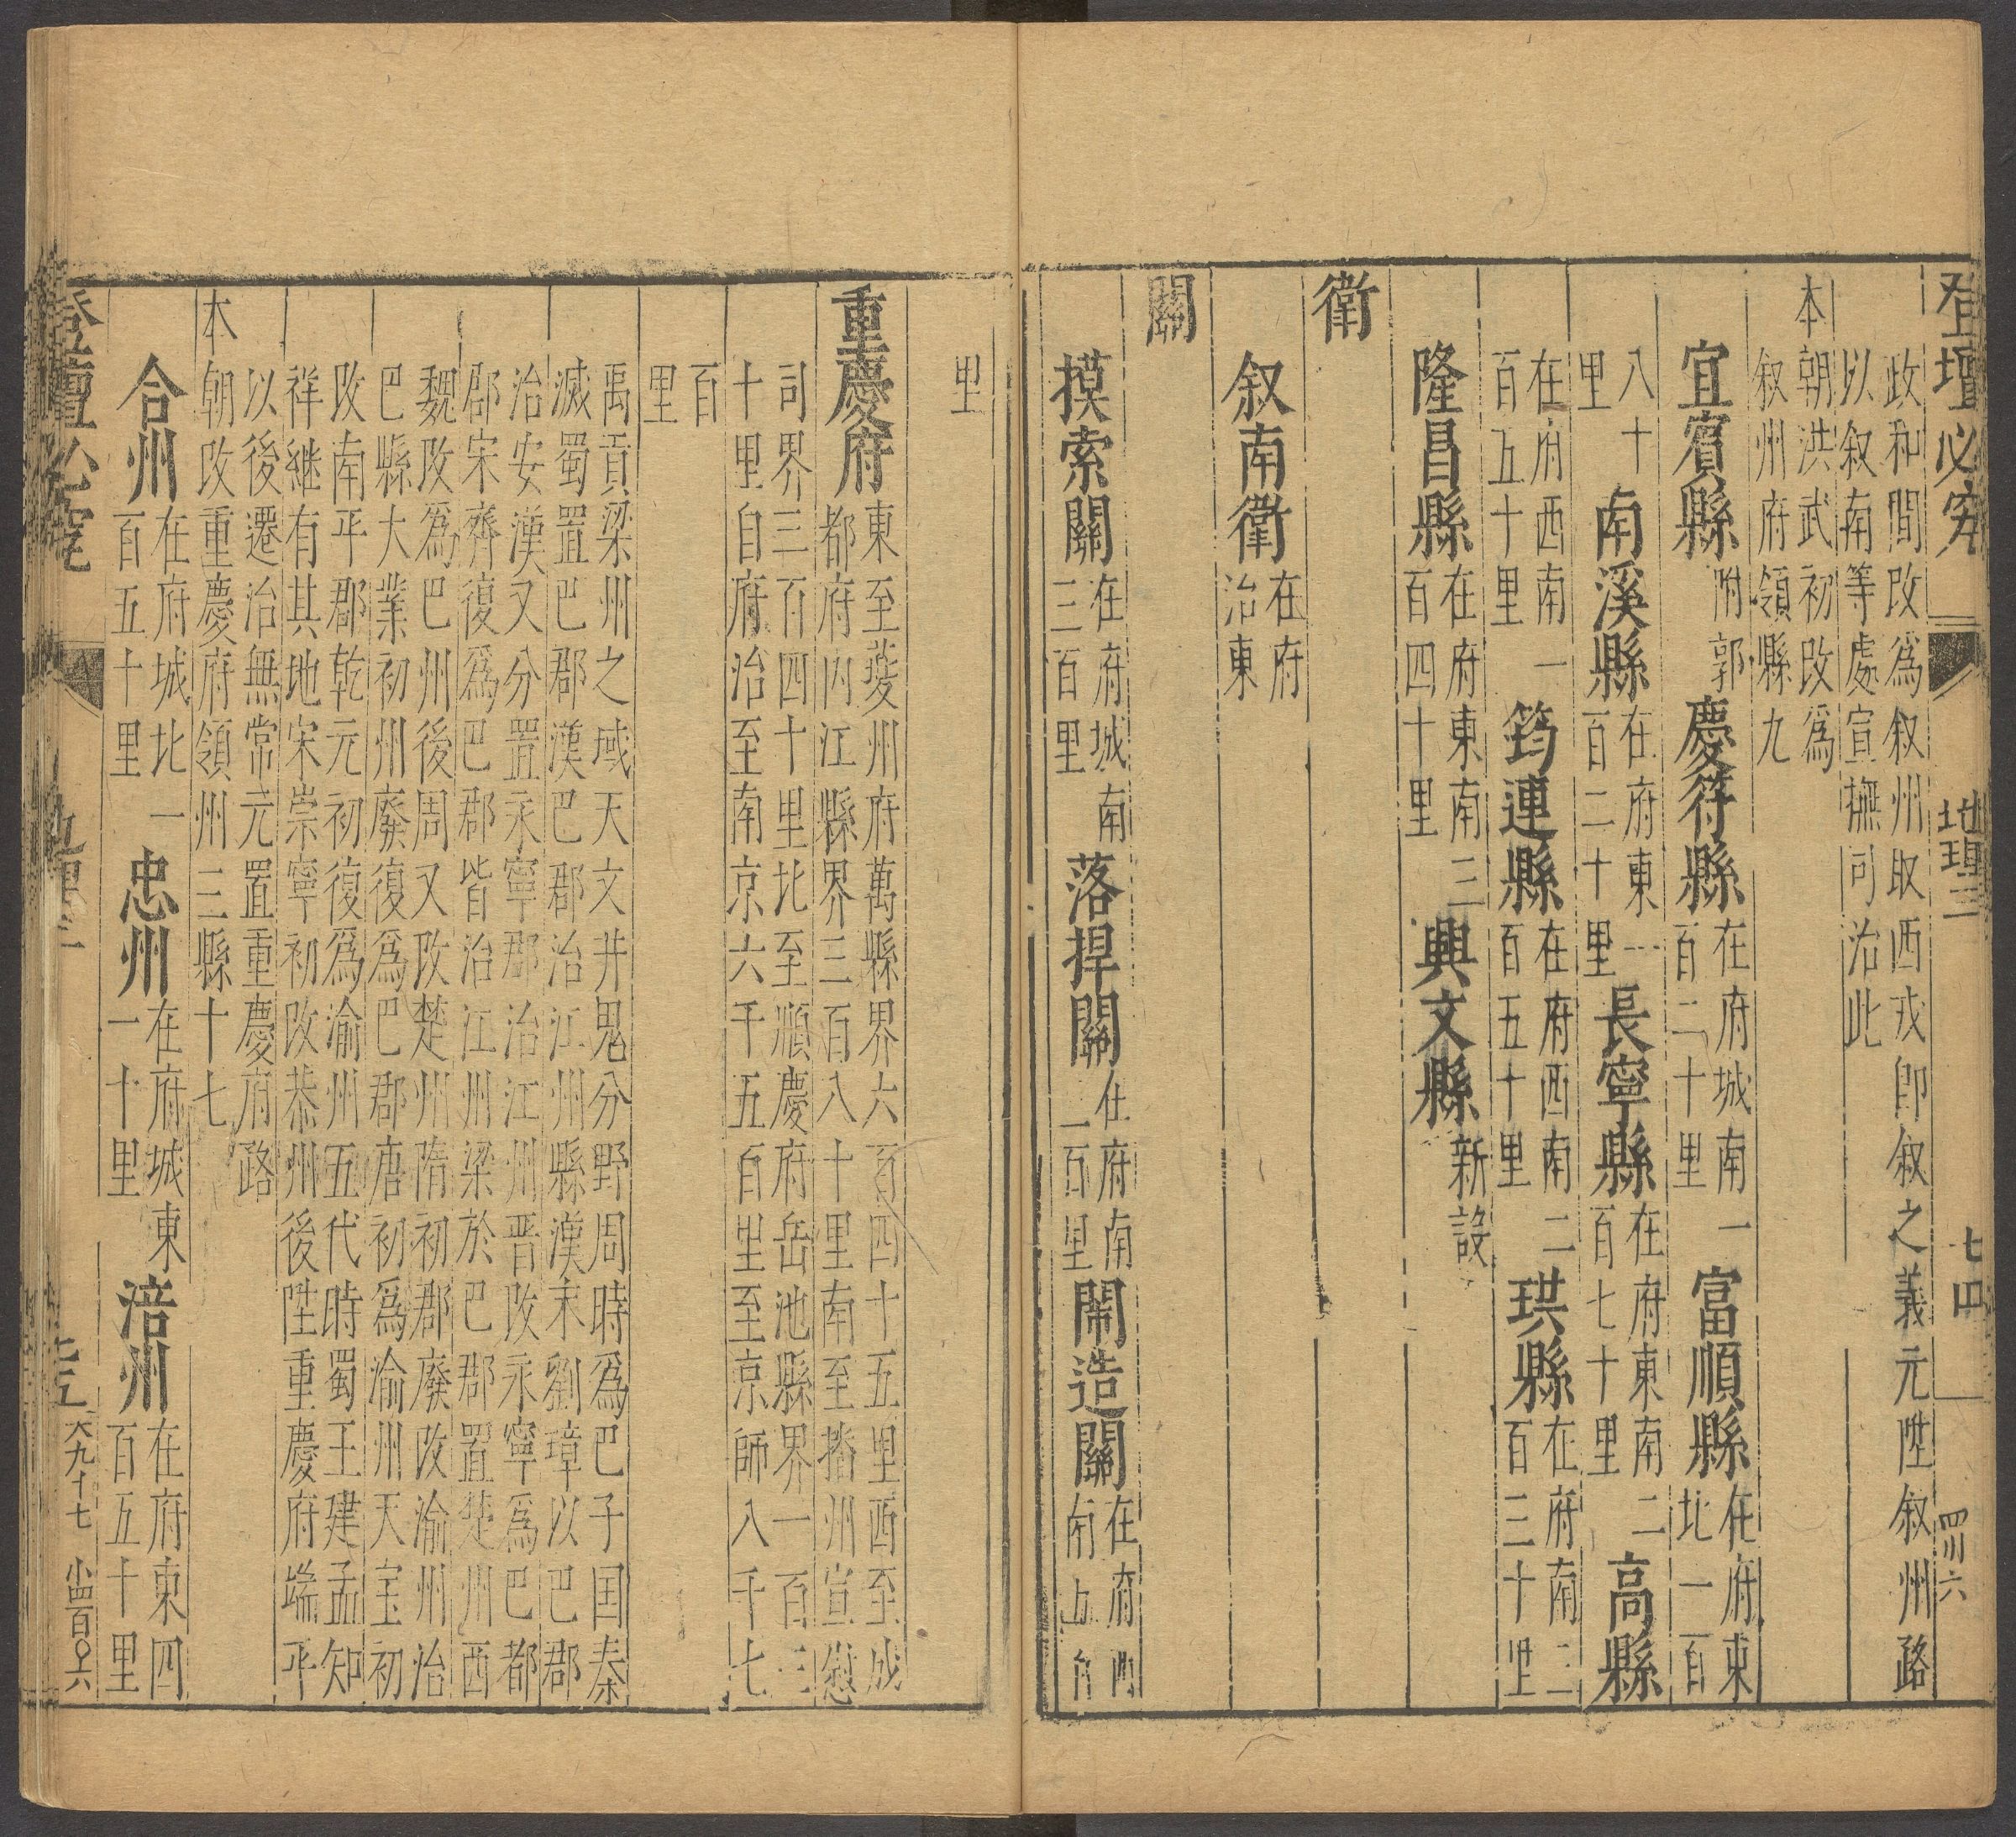 登壇必究 地理三 七四 四川六
政和間改爲叙州取西戎即叙之義元陞叙州路
以叙南等處宣撫司治此
本朝洪武初改爲
叙州府領縣九
宜賓縣附郭 慶符縣在府城南一百二十里 富順縣在府東北一百
八十里 南溪縣在府東一百二十里 長寧縣在府東南二百七十里 高縣
在府西南一百五十里 筠連縣在府西南二百五十里 珙縣在府南三百三十里
隆昌縣在府東南三百四十里 興文縣新設
衛
叙南衛在府治東
關
摸索關在府城南三百里 落捍關在府南一百里 鬧造關在府西南五百
里
重慶府東至夔州府萬縣界六百四十五里西至成
都府內江縣界三百八十里南至播州宣慰
司界三百四十里北至順慶府岳池縣界一百三
十里自府治至南京六千五百里至京師八千七
百里
禹貢梁州之域天文井鬼分野周時爲巴子国秦
滅蜀置巴郡漢巴郡治江州縣漢末劉璋以巴郡
治安漢又分置永寧郡治江州晋改永寧爲巴都
郡宋齊復爲巴郡皆治江州梁於巴郡置楚州西
魏改爲巴州後周又改楚州隋初郡廢改渝州治
巴縣大業初州廢復爲巴郡唐初爲渝州天宝初
改南平郡乾元初復爲渝州五代時蜀王建孟知
祥継有其地宋崇寧初改恭州後陞重慶府端平
以後遷治無常元置重慶府路
本朝改重慶府領州三縣十七
合州在府城北一百五十里 忠州在府城東一十里 涪州在府東四百五十里
登壇必究 地理三 七五 大九十七 小四百〇六